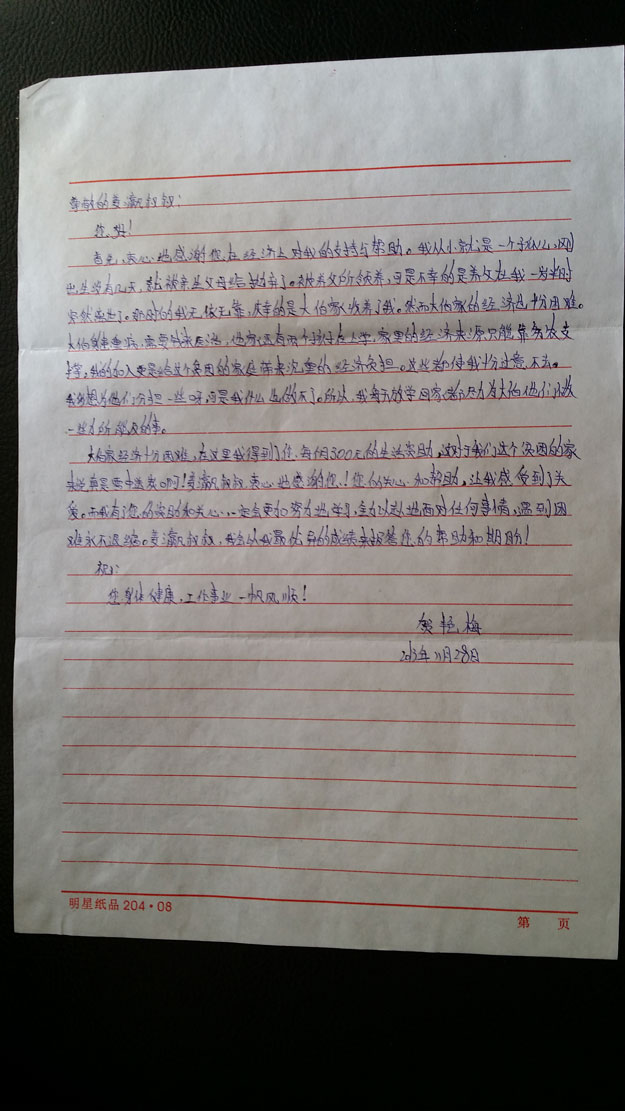 尊敬的麦瀛叔叔:
您好!
首先,衷心地感谢您在经济上对我的支持与帮助。我从小就是一个孤儿,刚
出生没有几天,就被亲生父母给抛弃了。被养父所领养,可是不幸的是养父在我一岁半时
突然病逝了。那时的我无依无靠,庆幸的是大伯家收养了我。然而大伯家的经济也十分困难。
大伯身患重病,需要钱来医治,他家还有两个孩子在上学,家里的经济来源只能靠务农支
撑,我的加入更是给这个贫困的家庭带来沉重的经济负担。这些都使我十分过意不去。
我多想为他们分担一些呀,可是我什么也做不了。所以,我每天放学回家都尽力为大伯他们做
一些力所能及的事。
大伯家经济十分困难,在这里我得到了您每月300元的生活资助,这对于我们这个贫困的家
庭真是雪中送炭呀!麦瀛叔叔,衷心地感谢您!您的关心和帮助,让我感受到了关
爱。于我有您的资助和关心,一定会更加努力地学习,全力以赴地面对任何事情,遇到困
难永不退缩。麦瀛叔叔,我会以我最优异的成绩来报答您的帮助和期盼!
祝:
您身体健康,工作事业一帆风顺!
贺艳梅
2013年11月28日
明星纸品 204·08
第 页